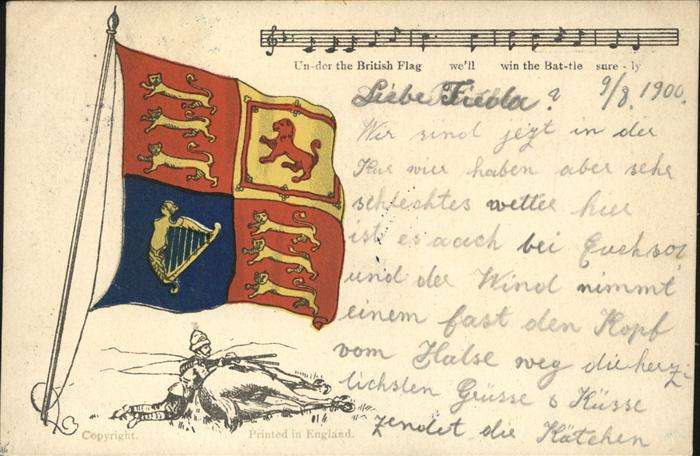 Un-der the British Flag we'll win the Bat-tle sure-ly
Liebe Frieda? 9/8. 1900.
Wir sind jezt in der
Kur wier haben aber sehr
schlechtes wetter hier
ist es auch bei Euch so?
und der Wind nimmt
einem fast den Kopf
vom Halse weg die herz-
lichsten Grüsse & Küsse
zendet die Kätchen
Copyright. Printed in England.